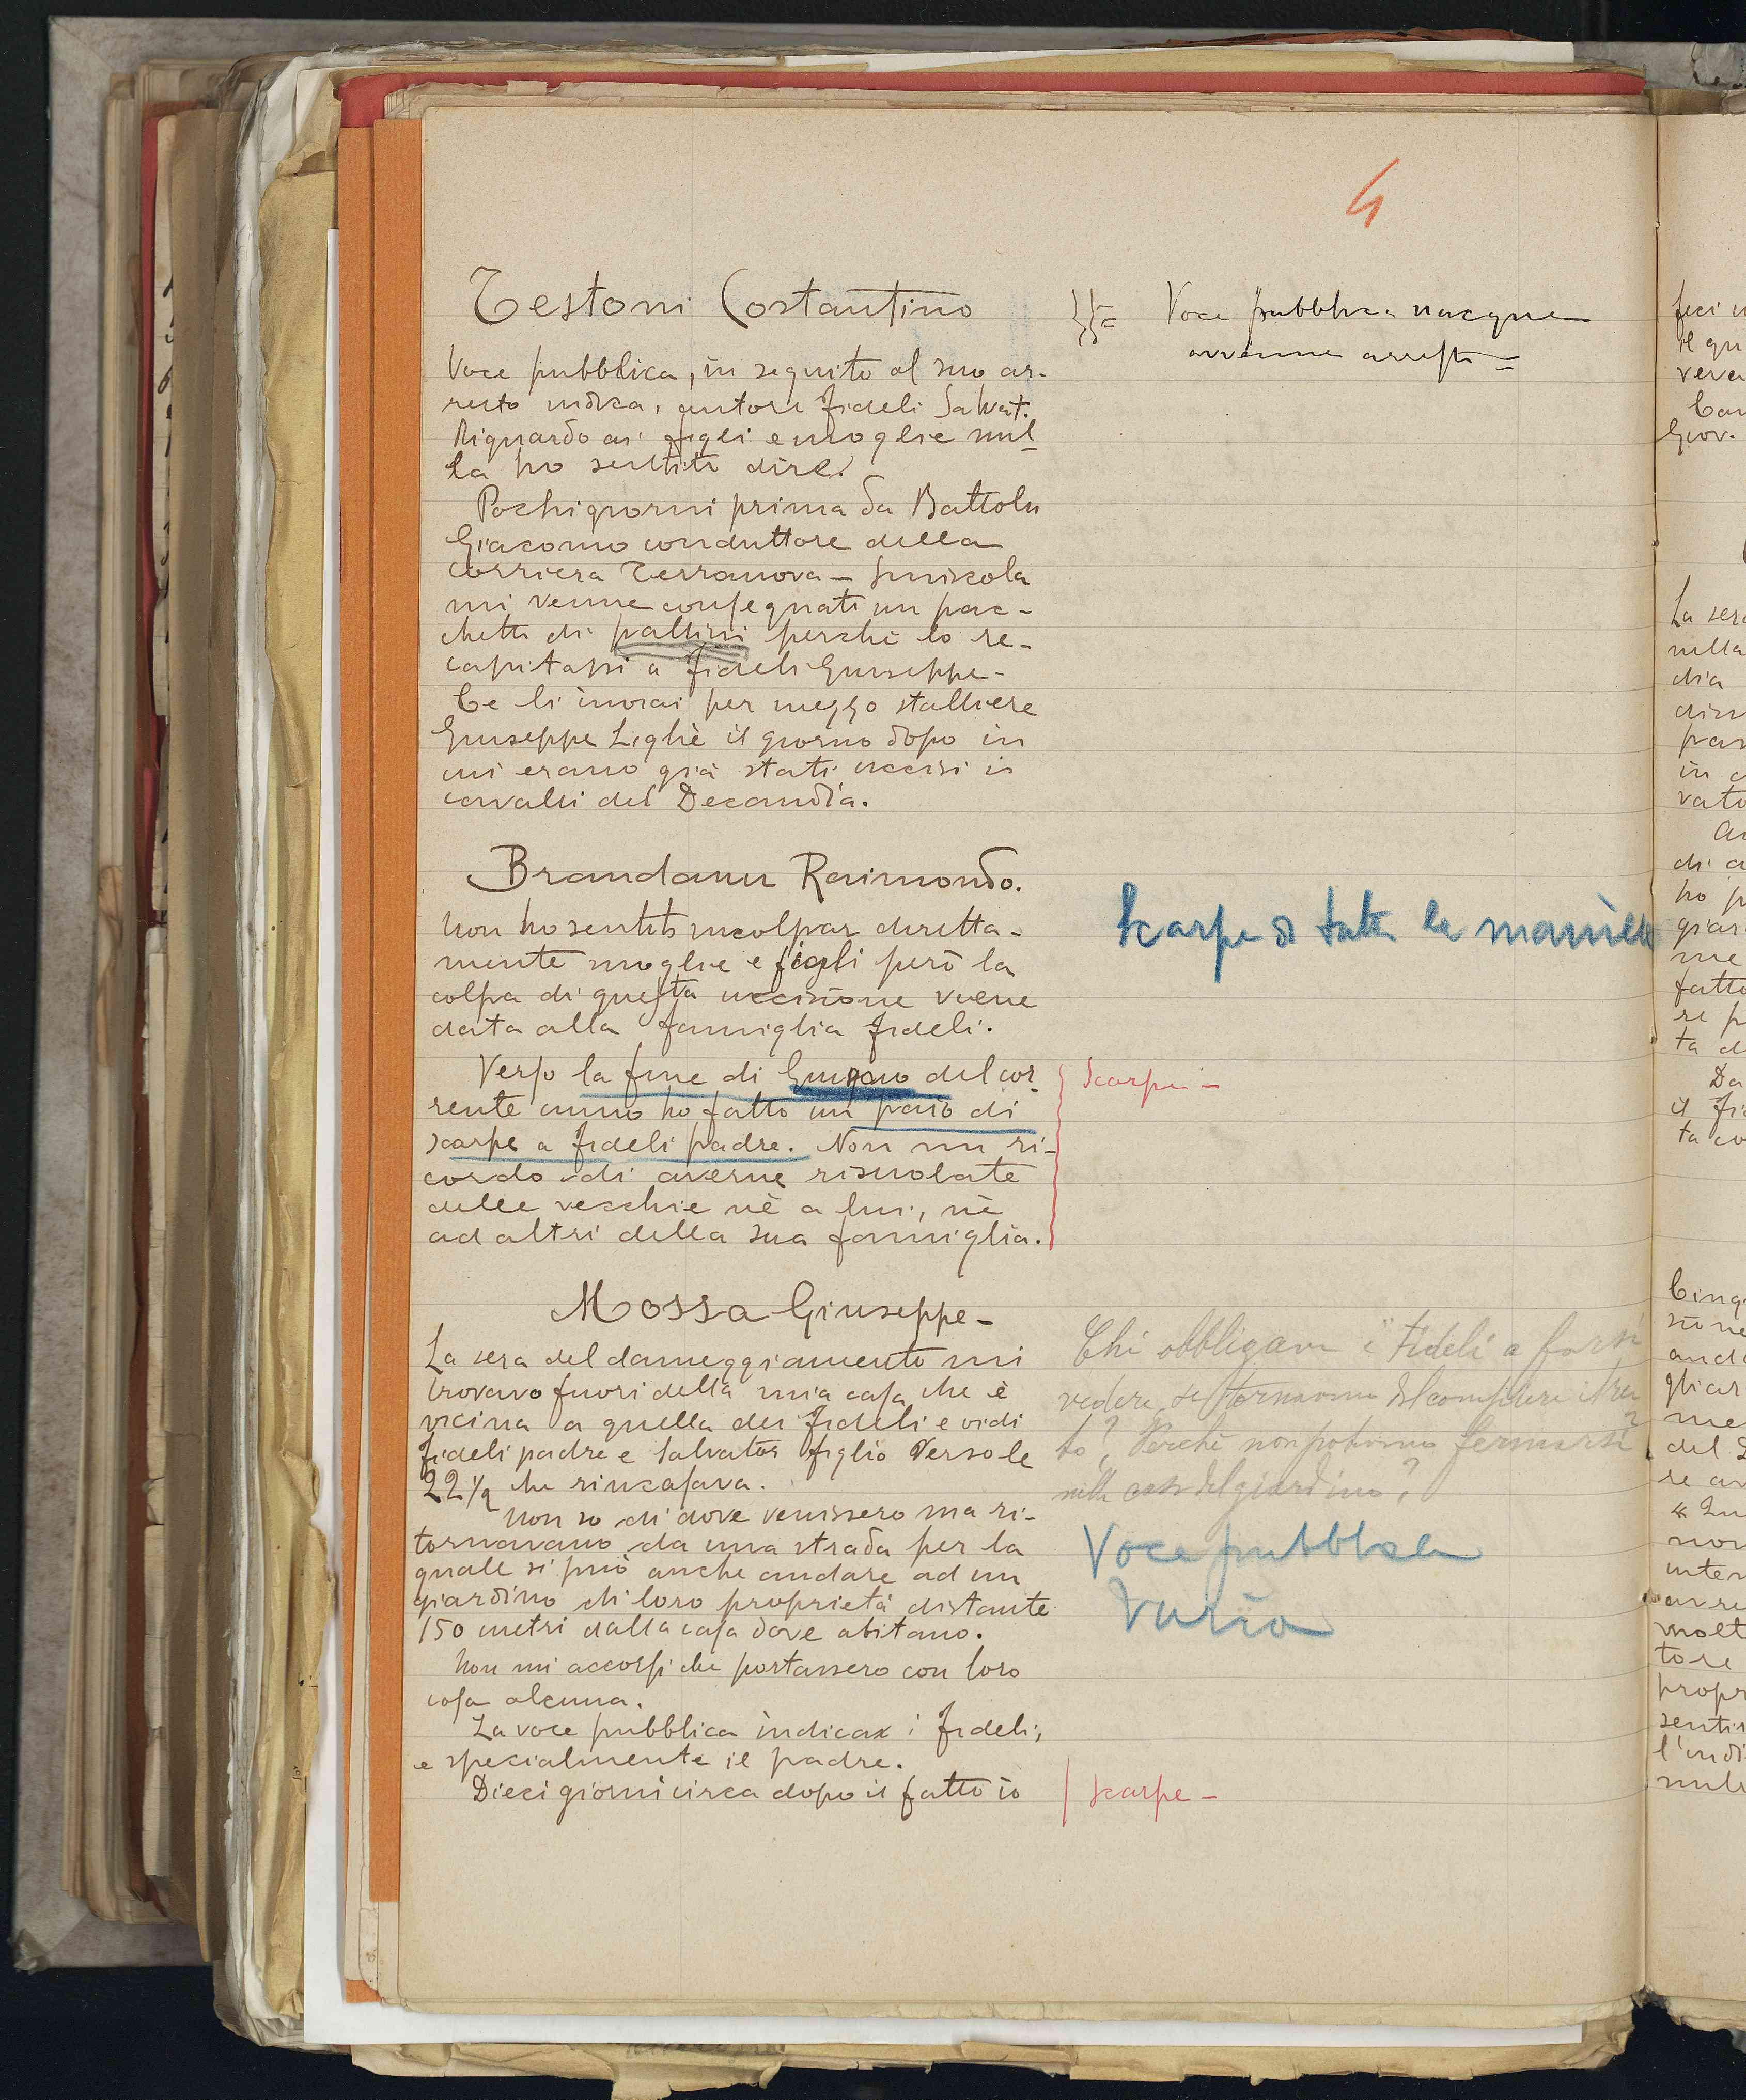 4
Testoni Costantino
Voce pubblica, in seguito al suo ar-
resto indica, autore Fideli Salvat.
Riguardo ai figli e moglie nul-
la ho sentito dire.
Pochi giorni prima da Battolu
Giacomo conduttore della
corriera Terranova - Siniscola
mi venne consegnato un pac-
chetto di pallini perchè lo re-
capitassi a Fideli Giuseppe -
Ce li inviai per mezzo stalliere
Giuseppe Lighè il giorno dopo in
cui erano già stati uccisi i
cavalli del Decandia.
Voce pubblica nacque
avvenne arresto -
Brandanu Raimondo.
Non ho sentito incolpar diretta-
mente moglie e figli però la
colpa di questa uccisione viene
data alla famiglia Fideli.
Verso la fine di Giugno del cor-
rente anno ho fatto un paio di
scarpe a Fideli padre. Non mi ri-
cordo di averne risuolate
delle vecchie nè a lui, nè
ad altri della sua famiglia.
Scarpe di tutte le maniere
Scarpe -
Mossa Giuseppe -
La sera del danneggiamento mi
trovavo fuori della mia casa che è
vicina a quella dei Fideli e vidi
Fideli padre e Salvator figlio verso le
22 1/2 che rincasava.
Non so di dove venissero ma ri-
tornavano da una strada per la
quale si può anche andare ad un
giardino di loro proprietà distante
150 metri dalla casa dove abitano.
Non mi accorsi che portassero con loro
cosa alcuna.
La voce pubblica indicax i Fideli,
e specialmente il padre.
Dieci giorni circa dopo il fatto io
Chi obbligava i Fideli a farsi
vedere se tornavano dal compiere il rea
to? Perchè non potevano fermarsi
nella casa del giardino?
Voce pubblica
Varia
Scarpe -